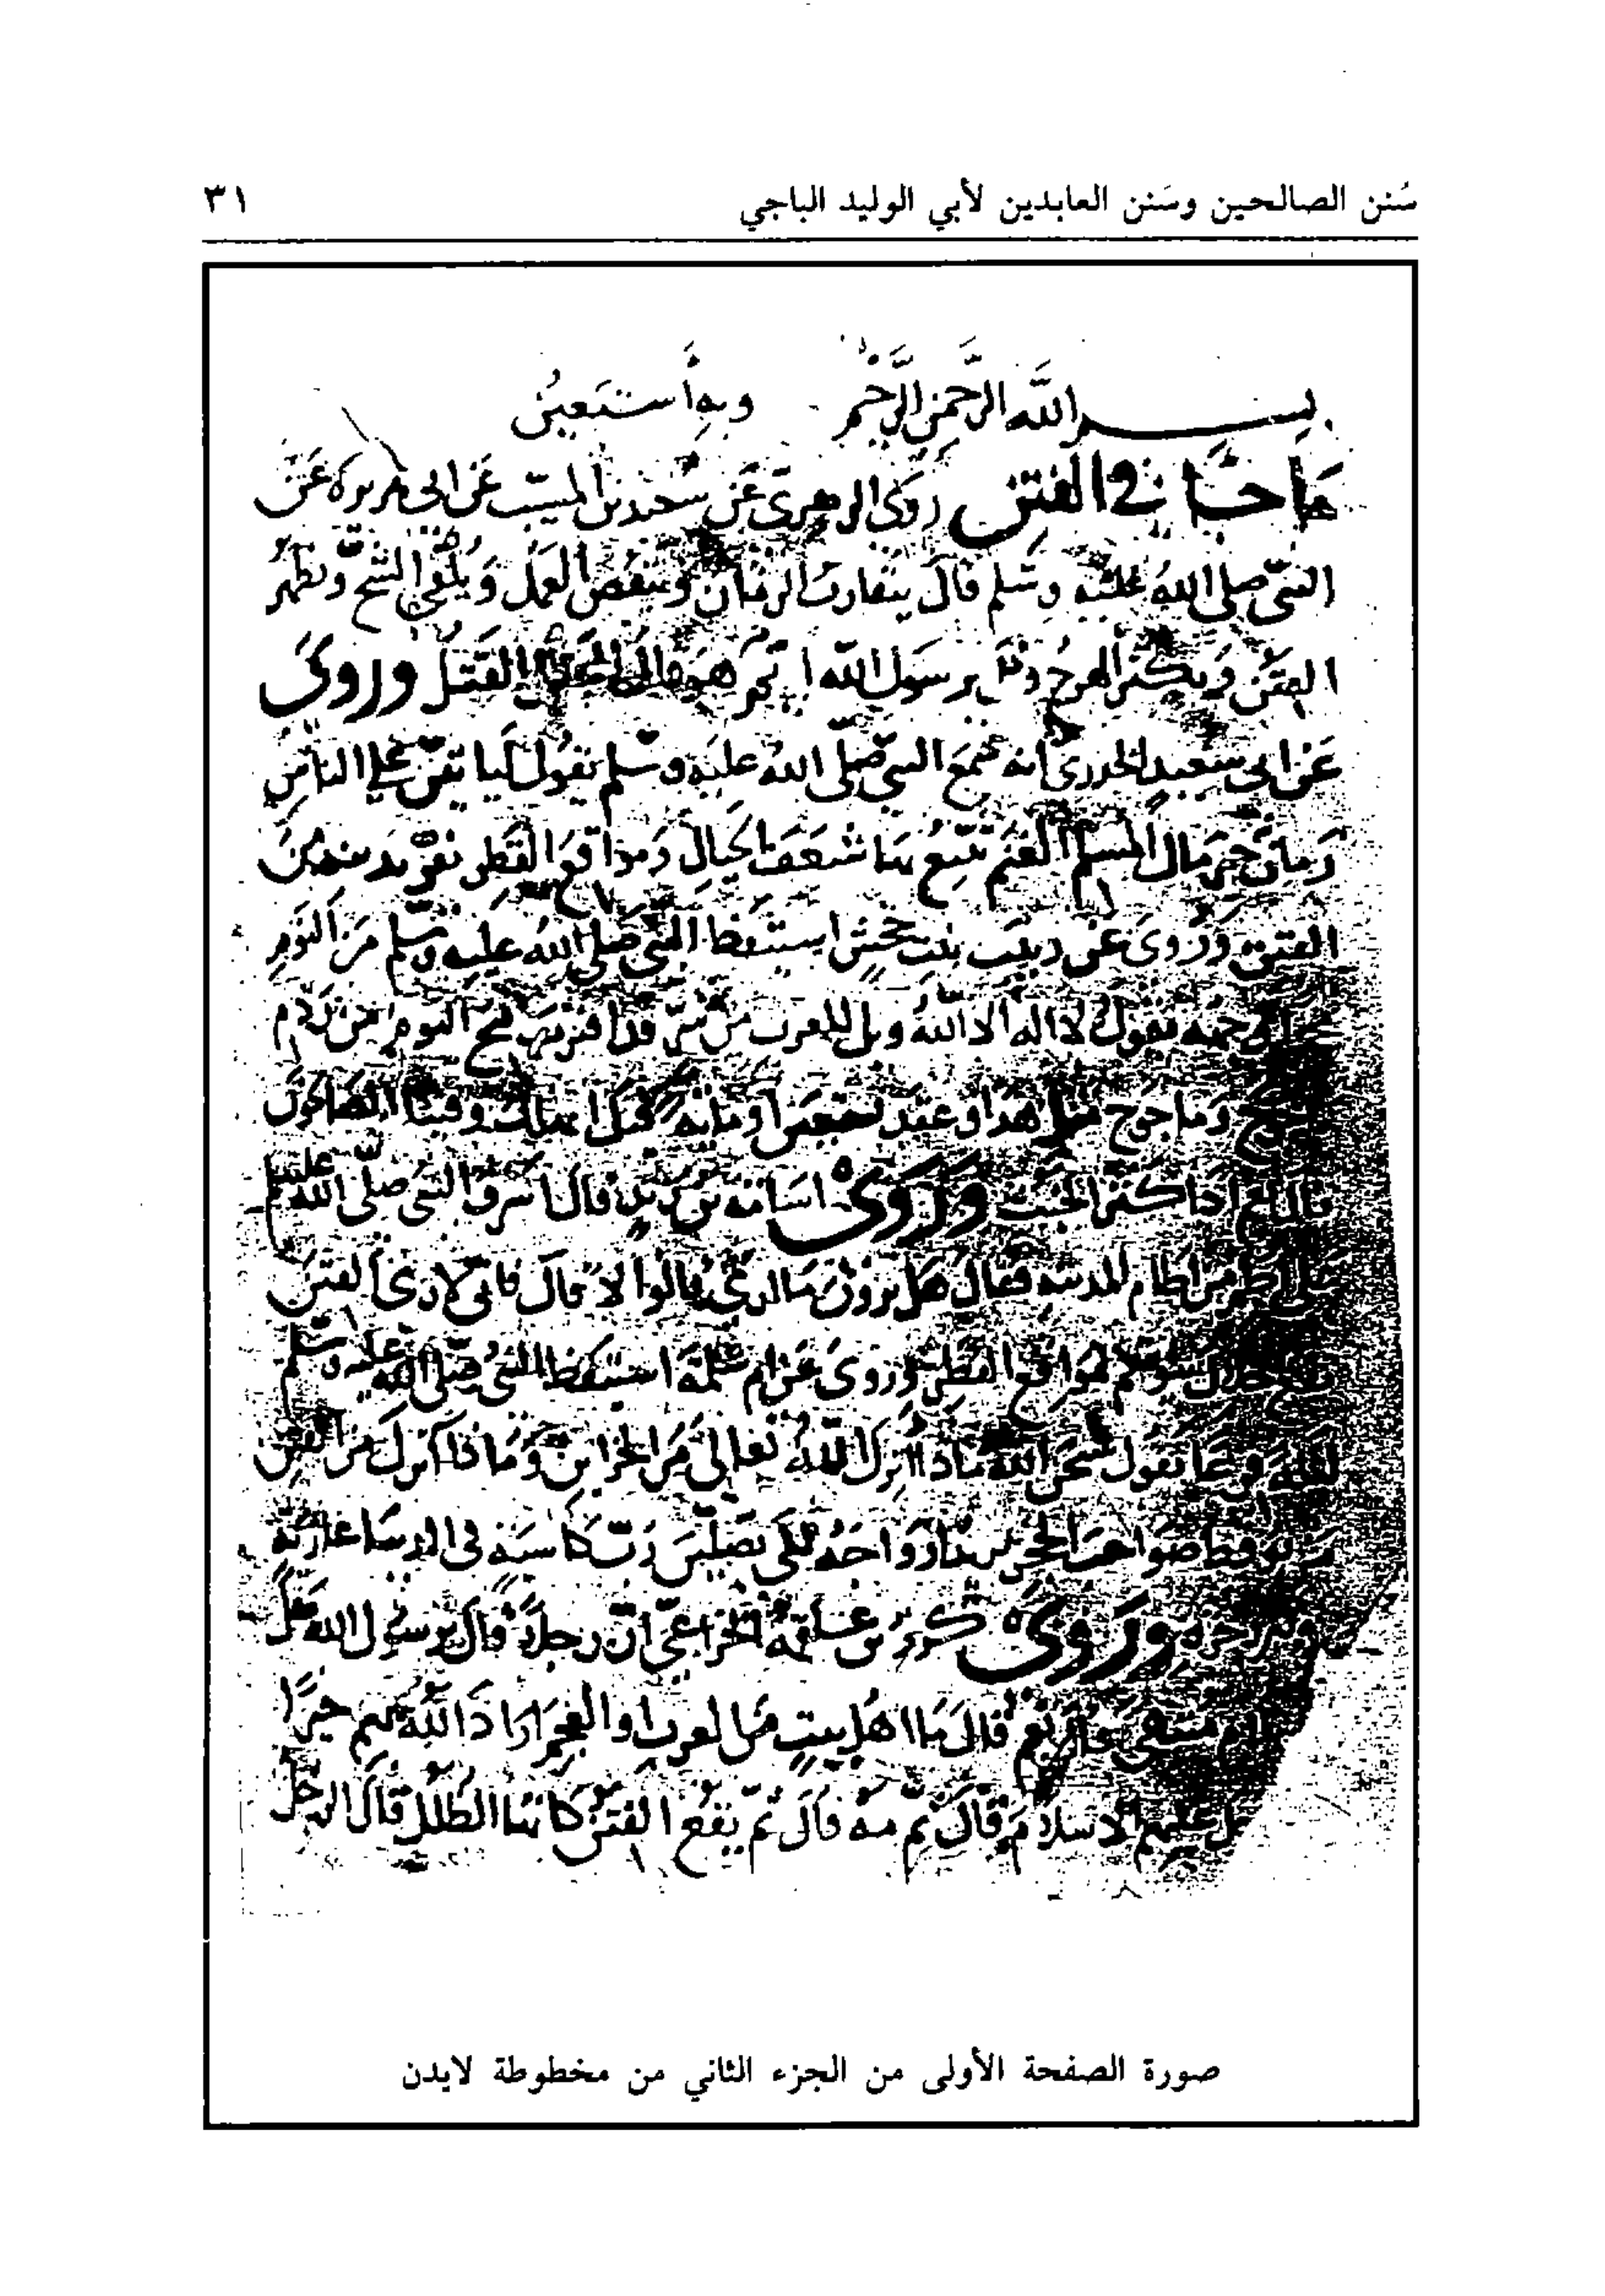 سُنن الصالحين وسَنن العابدين لأبي الوليد الباجي ٣١
بسم الله الرحمن الرحيم وبه أستعين
ما جا في الفتن روى الزهري عن سعيد بن المسيب عن ابى هريرة عن
النبي صلى الله عليه وسلم قال يتقارب الزمان وينقص العمل ويلقى الشح وتظهر
الفتن ويكثر الهرج يرسول الله هو قال القتل وروى
عن ابى سعيد الخدرى انه سمع النبي صلى الله عليه وسلم يقول ليا تين على الناس
زمان خير مال المسلم الغنم تتبع بها شعف الجبال ومواقع القطر يفر بدينه من
الفتن وروى عن زينب بنت جحش استيقظ النبي صلى الله عليه وسلم من النوم
وجهه يقول لا اله الا الله ويل للعرب من شر قد اقترب فتح اليوم من ردم
وماجوج مثل هذا وعقد تسعين او مايه قيل انهلك وفينا الصالحون
قال نعم اذا كثر الخبث وروى اسامة بن زيد قال اشرف النبي صلى الله عليه
على اطم من اطام المدينه فقال هل ترون ما ارى قالوا لا قال فانى لارى الفتن
القطر وروى عن ام سلمة استيقظ النبي صلى الله عليه وسلم
يقول سبحن الله ماذا انزل الله تعالى من الخزاين وماذا انزل من الفتن
لكى يصلين رب كاسية في الدنيا عارية
وروى كرز بن علقمة الخزاعي ان رجلا قال يرسول الله هل
قال ما اهل بيت من العرب او العجم اراد الله بهم خيرا
عليهم الاسلام قال ثم مه قال ثم يقع الفتن كانها الظلل قال الرجل
صورة الصفحة الأولى من الجزء الثاني من مخطوطة لايدن